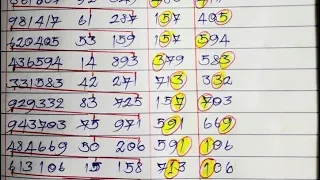 981417 61 287 157 405
420405 53 159 157 594
436594 14 893 379 583
331583 42 271 713 332
929332 83 725 157 703
943703 75 971 591 669
484669 50 206 591 106
413106 15 158 713 106